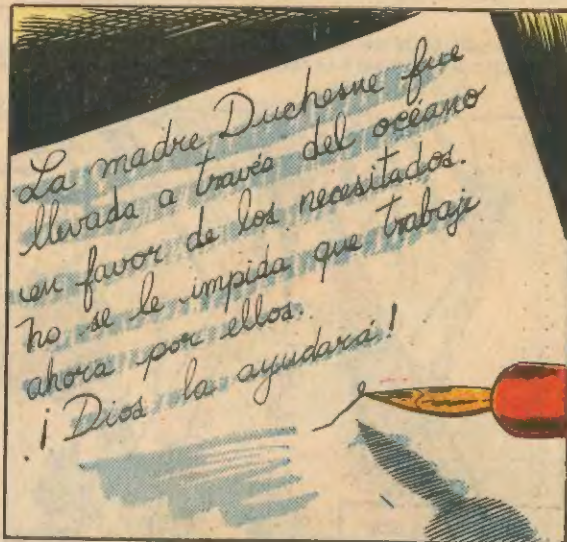 La madre Duchesne fue
llevada a través del océano
en favor de los necesitados.
no se le impida que trabaje
ahora por ellos.
¡Dios la ayudará!